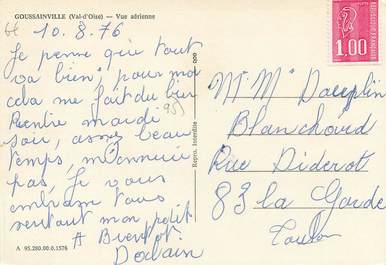 GOUSSAINVILLE (Val-d'Oise) — Vue aérienne
le 10.8.76
Je pense que tout
va bien, pour moi
cela me fait du bien
Rentré mardi
soir, assez beau
temps, m'ennuie
pas, Je vous
embrasse tous
surtout mon petit
A Bientôt.
A 95.280.00.0.1576
(95)
Repro. Interdite
1,00
Mr Mme Dauplin
Blanchard
Rue Diderot
83 la Garde
Toulon